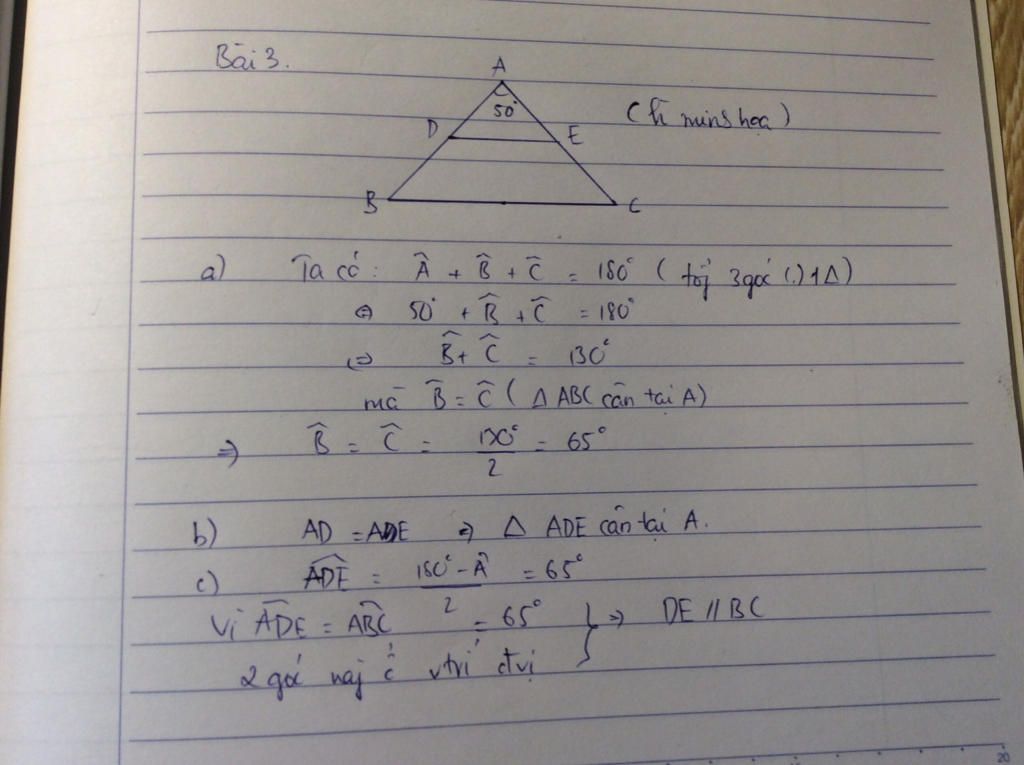 Bài 3.
A
50°
D
E
(h minh họa)
B
C
a) Ta có: Â + B̂ + Ĉ = 180° (tổg 3 góc (.) 1 Δ)
⇔ 50° + B̂ + Ĉ = 180°
⇔ B̂ + Ĉ = 130°
mà B̂ = Ĉ (Δ ABC cân tại A)
⇒ B̂ = Ĉ = 130°/2 = 65°
b) AD = AE ⇒ Δ ADE cân tại A.
c) ADE^ = (180° - Â)/2 = 65°
Vì ADE^ = ABC^ = 65° } ⇒ DE // BC
2 góc này ở vtrí đvị
20